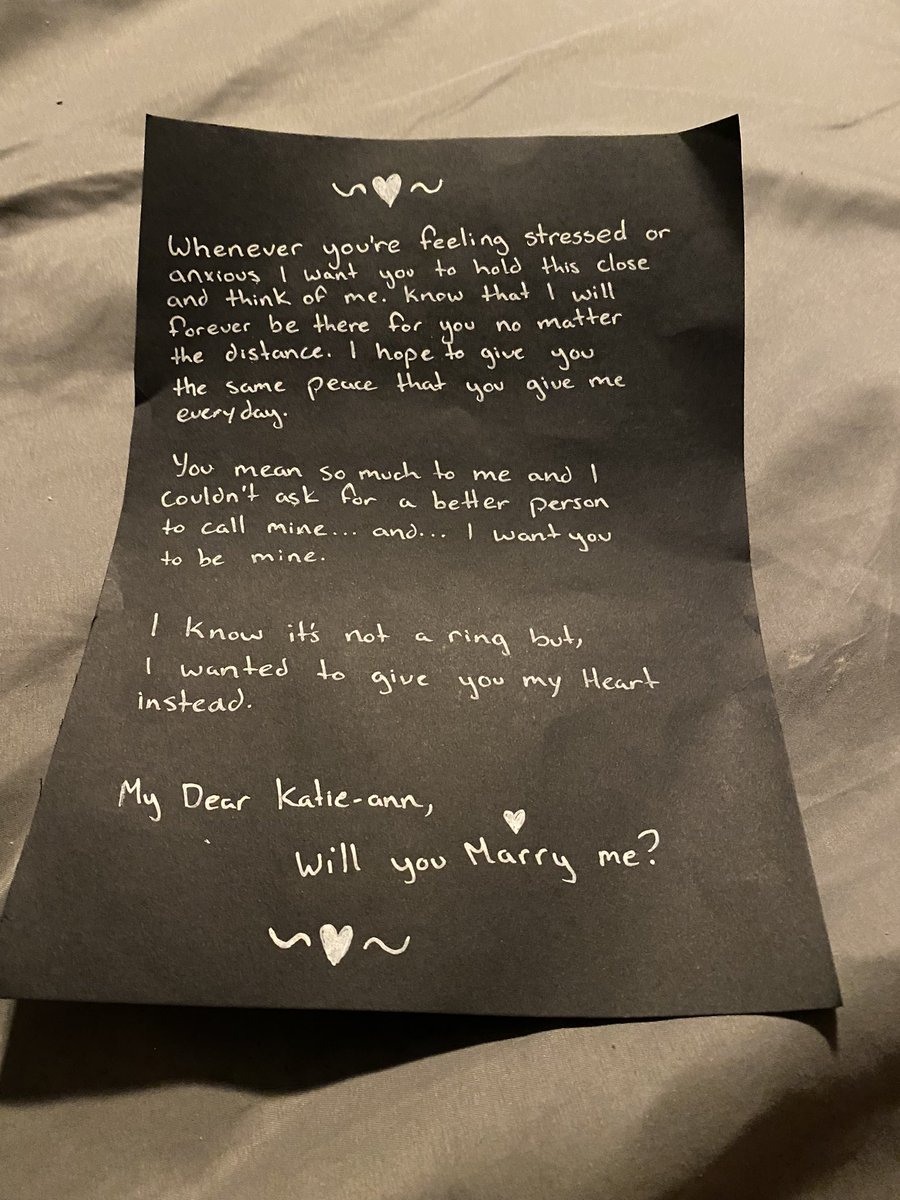 Whenever you're feeling stressed or
anxious I want you to hold this close
and think of me. Know that I will
forever be there for you no matter
the distance. I hope to give you
the same peace that you give me
everyday.
You mean so much to me and I
couldn't ask for a better person
to call mine... and... I want you
to be mine.
I know it's not a ring but,
I wanted to give you my Heart
instead.
My Dear Katie-ann,
Will you Marry me?